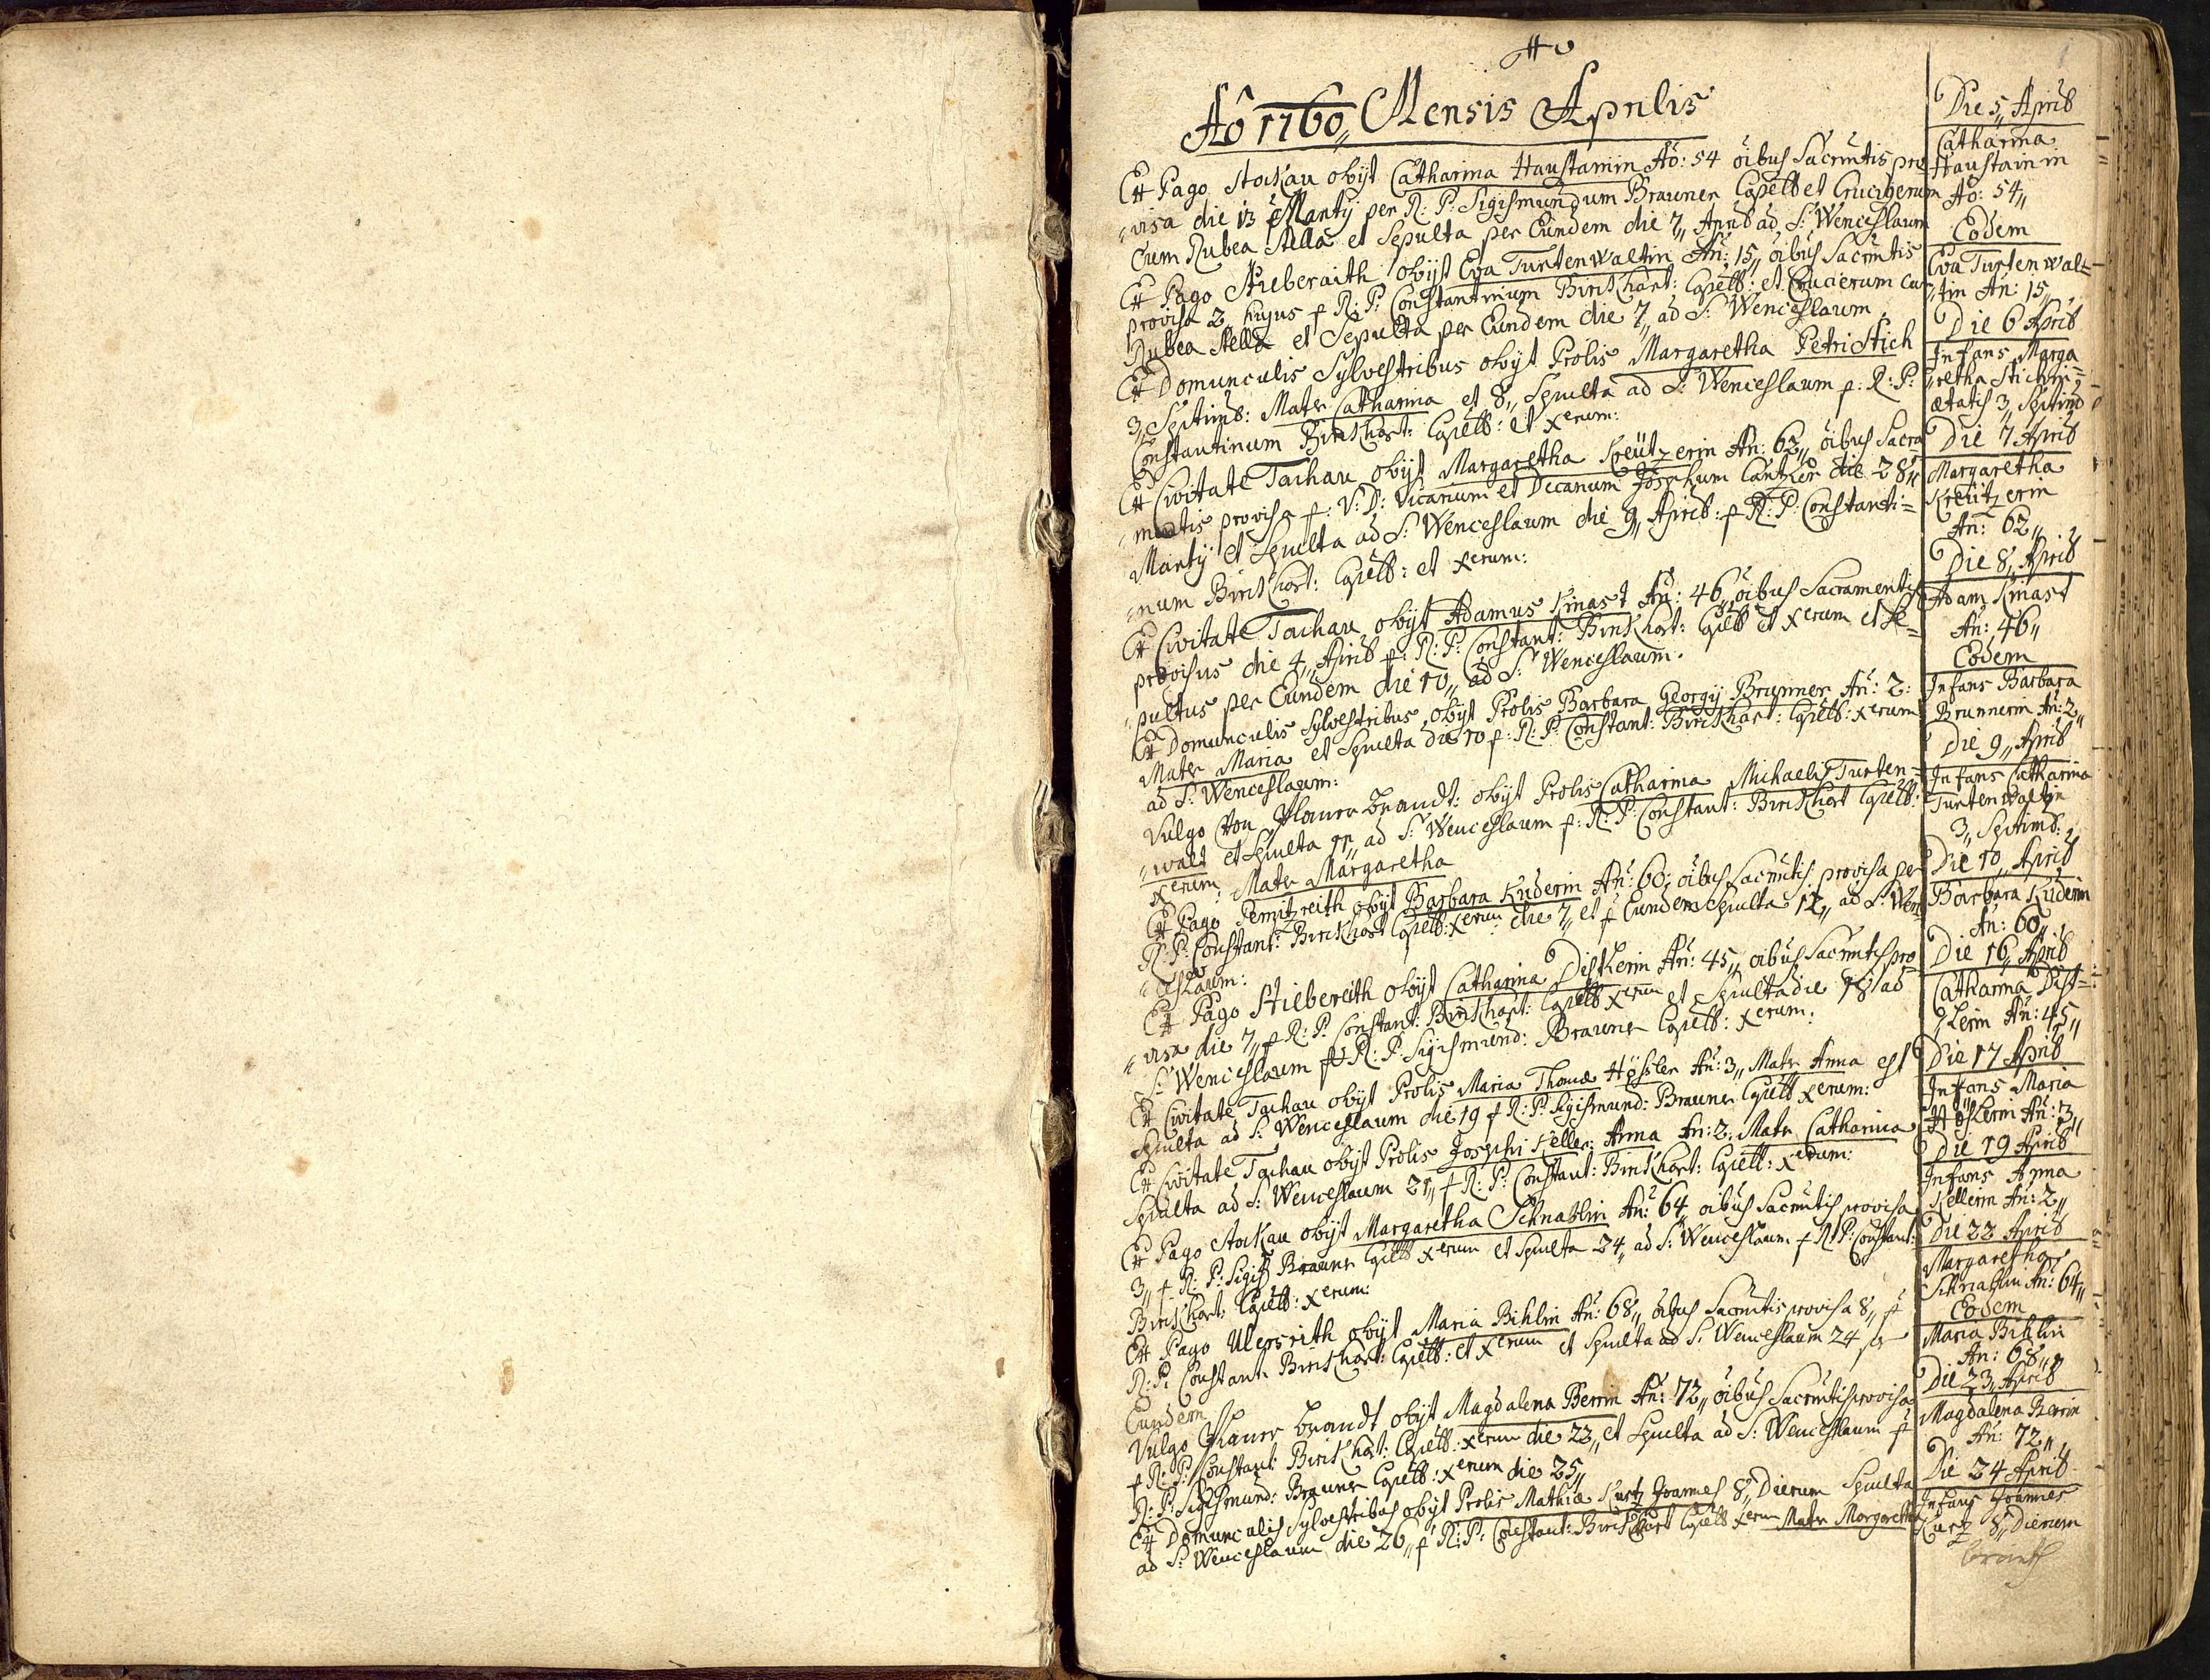 Aõ 1760,, Mensis Aprilis
Ex Pago Stokau obijt Catharina Haustainin Aõ: 54 oibus Sacmtis pro
visa die 13 Martij per R: P: Sigismundum Brauner Capell et Crucigerum
Cum Rubea Stella et Sepulta per Eundem die 7,, April ad S: Wenceslaum
Ex Pago Stieberaith obijt Eva Turtenwaltin An: 15,, oibus Sacmtis
provisa 2 hujus p R: P: Constantinum Birckhart: Capell: et Crucierum cum
Rubea Stella et Sepulta per Eundem die 7,, ad S: Wenceslaum
Ex Domunculis Sylvestribus obijt Prolis Margaretha Petri Stich
3,, Septimb: Mater Catharina et 8,, Spulta ad S: Wenceslaum p: R: P:
Constantinum Birckhart: Capell: et Xerum:
Ex Civitate Tachau obijt Margaretha Kreützerin An: 62,, oibus Sacra
mentis provisa p: V: D: Vicarium et Decanum Josephum Cantzler die 28,,
Martij et Spulta ad S: Wenceslaum die 9,, April: p R: P: Constanti=
=num Birckhart: Capell: et Xerum:
Ex Civitate Tachau obijt Adamus Kinast An: 46,, oibus Sacramentis
provisus die 4,, April p: R: P: Constant: Birckhart: Capell et Xerum et Se=
pultus per Eundem die 10,, ad S: Wenceslaum.
Ex Domunculis Sylvestribus obijt Prolis Barbara Georgij Brunner An: 2:
Mater Maria et Spulta die 10 p: R: P: Constant: Birckhart: Capell: Xerum
ad S: Wenceslaum:
Vulgo Von Planer brandt: obijt Prolis Catharina Michaelis Turten=
=walt et Spulta 11,, ad S: Wenceslaum p: R: P: Constant: Birckhart Capell:
Xerum: Mater Margaretha
Ex Pago Pernitzreith obijt Barbara Kuderin An: 60: oibus Sacmtis provisa per
R: P: Constant: Birckhart Capell: Xerum: die 7,, et p Eundem Spulta 12,, ad S: Wen
ceslaum:
Ex Pago Stiebereith obijt Catharina Distlerin An: 45,, oibus Sacmtis pro
visa die 7,, p R: P: Constant: Birckhart: Capell Xerum et Spulta die 18 ad
S: Wenceslaum p R: P: Sigismund: Brauner Capell: Xerum:
Ex Civitate Tachau obijt Prolis Maria Thomæ Hössler An: 3,, Mater Anna est
Spulta ad S: Wenceslaum die 19 p R: P: Sigismund: Brauner Capell Xerum:
Ex Civitate Tachau obijt Prolis Josephi Keller: Anna An: 2: Mater Catharina
Spulta ad S: Wenceslaum 21,, p R: P: Constant: Birckhart: Capell: Xerum:
Ex Pago Stokau obijt Margaretha Schnablin An: 64,, oibus Sacmtis provisa
3,, p R: P: Sigis Brauner Capell Xerum et Spulta 24,, ad S: Wenceslaum p R: P: Constant:
Birckhart Capell: Xerum:
Ex Pago Ulersrith obijt Maria Bihlin An: 68,, oibus Sacmtis provisa 8,, p
R: P: Constant: Birckhart: Capell: et Xerum et Spulta ad S: Wenceslaum 24 p
Eundem
Vulgo Planer brandt obijt Magdalena Berrin An: 72,, oibus Sacmtis provisa
p R: P: Constant: Birckhart: Capell: Xerum die 22,, et Spulta ad S: Wenceslaum p
R: P: Sigismund: Brauner Capell: Xerum die 25,,
Ex Domunculis Sylvestribus obijt Prolis Mathiæ Kurtz Joannes 8,, Dierum Spulta
ad S: Wenceslaum die 26,, p R: P: Constant: Birckhart Capell Xerum Mater Margaretha
Die 5,, April
Catharina
Haustainin
Aõ: 54,,
Eodem
Eva Turtenwal=
tin An: 15,,
Die 6 April
Infans Marga
retha Stichin
ætatis 3,, Septimb
Die 7 April
Margaretha
Kreützerin
An: 62,,
Die 8,, April
Adam Kinast
An: 46,,
Eodem
Infans Barbara
Brunnerin An: 2,,
Die 9,, April
Infans Catharina
Turtenwaltin
3,, Septimb:
Die 10,, April
Barbara Kuderin
An: 60,,
Die 16,, April
Catharina Dist=
lerin An: 45,,
Die 17 April
Infans Maria
Hösslerin An: 3,,
Die 19 April
Infans Anna
Kellerin An: 2,,
Die 22 April
Margaretha
Schnablin An: 64,,
Eodem
Maria Bihlin
An: 68,,
Die 23,, April
Magdalena Berrin
An: 72,,
Die 24 April
Infans Joannes
Kurtz 8,, Dierum